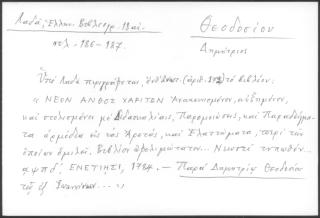 Λαδά, Ἑλλην. Βιβλιογρ. 18 αἰ.
σελ. 186-187.
Θεοδοσίου
Δημήτριος
Ὑπὸ Λαδᾶ περιγράφεται, (ἀριθ. ) τὸ βιβλίον:
« ΝΕΟΝ ΑΝΘΟΣ ΧΑΡΙΤΩΝ Ἀνακαινισμένον, αὐξημένον,
καὶ στολισμένον μὲ Διδασκαλίαις, Παρομοιώσεις, καὶ Παραδείγμα-
τα ἁρμόδια εἰς τὰς Ἀρετὰς, καὶ Ἐλαττώματα, περὶ τῶν
ὁποίων ὁμιλεῖ. Βιβλίον ὠφελιμώτατον... Νεωστὶ τυπωθὲν...
αψπδ΄. ΕΝΕΤΙΗΣΙ, 1784. — Παρὰ Δημητρίῳ Θεοδοσίου
τοῦ ἐξ Ἰωαννίνων... »